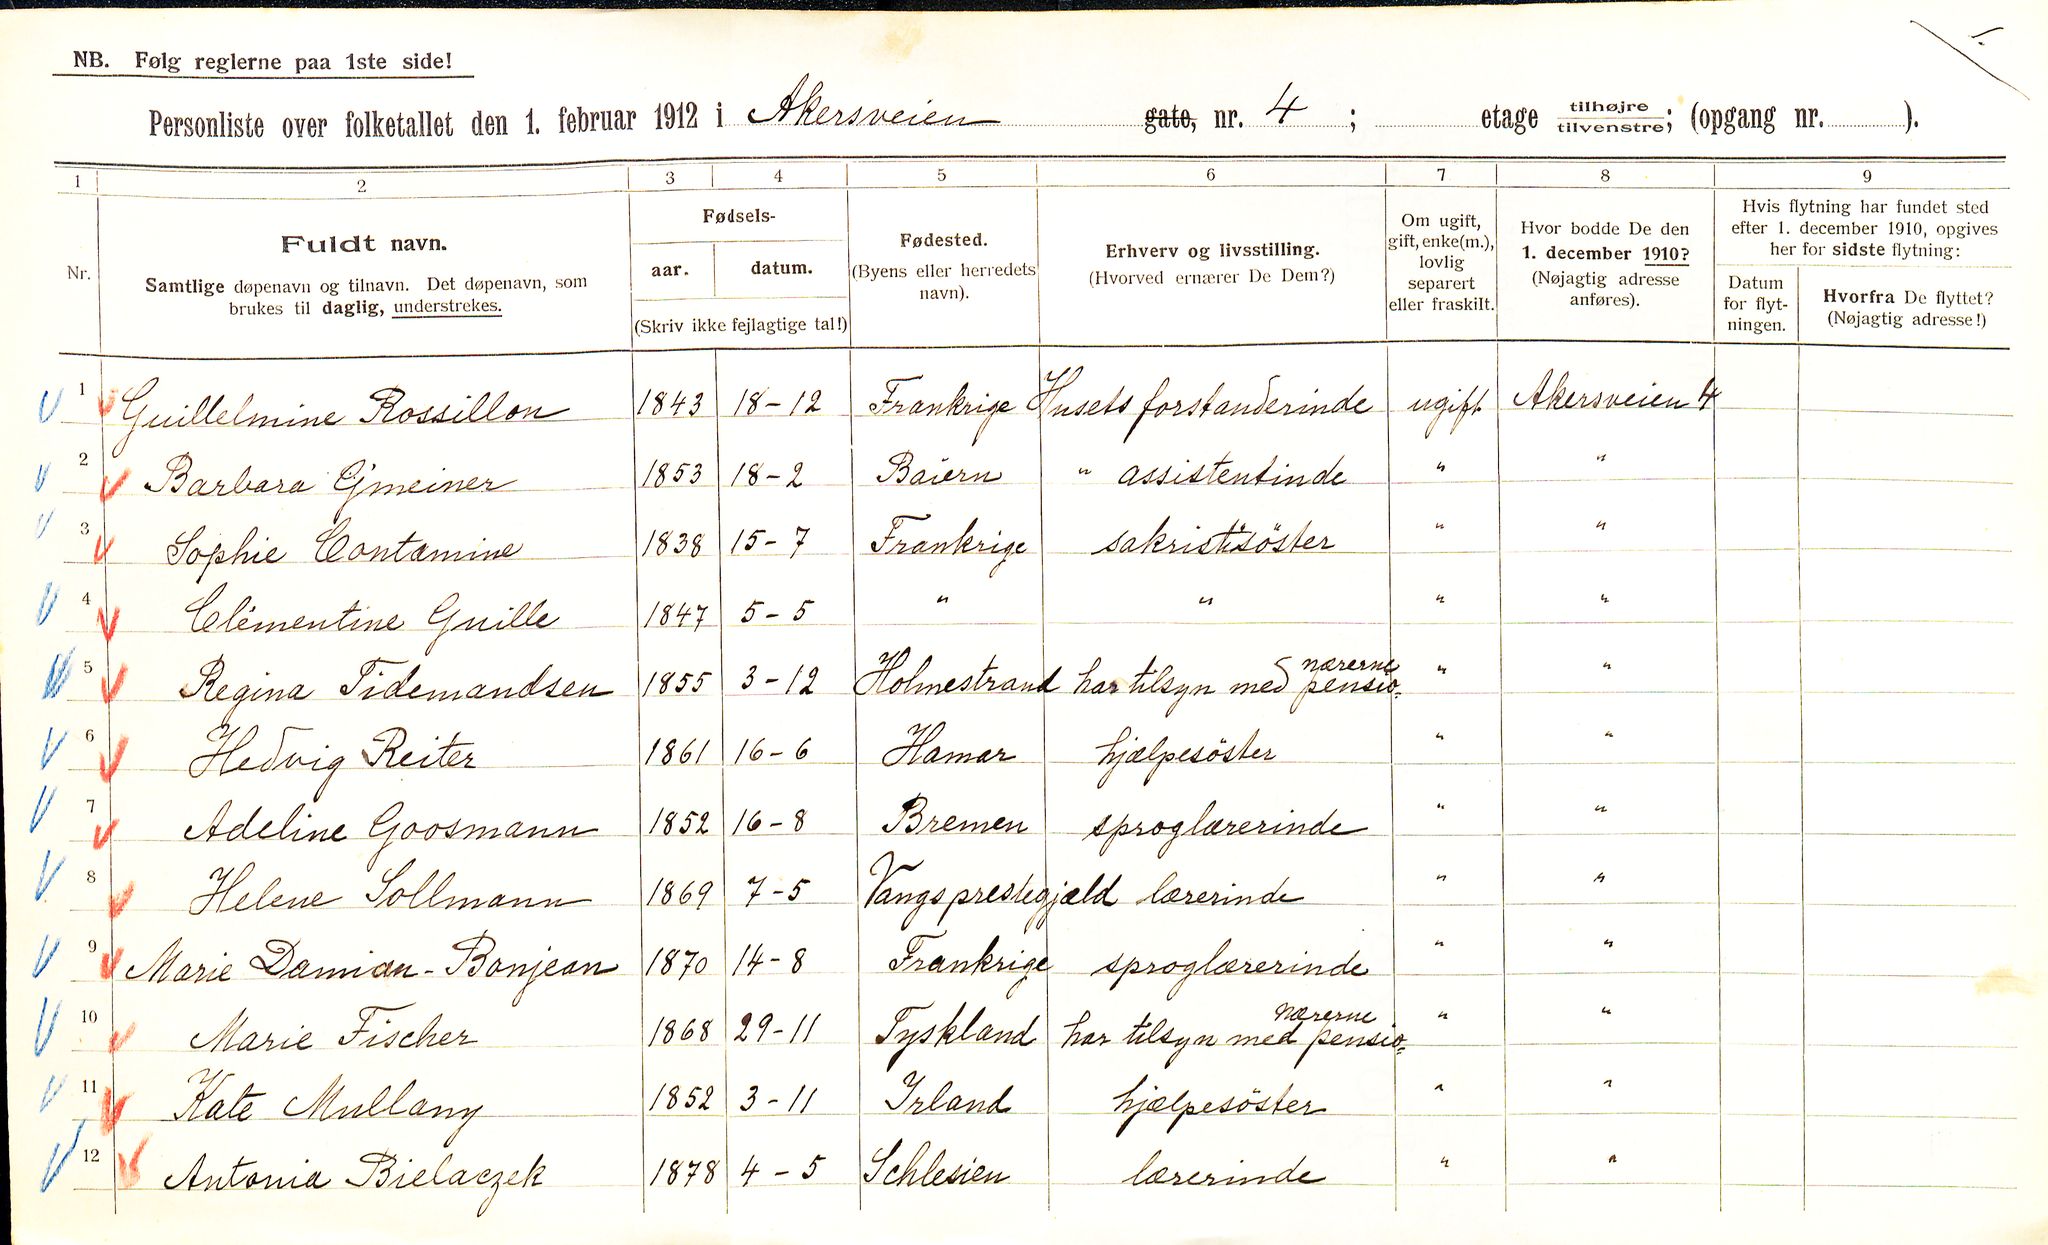 NB. Følg reglerne paa 1ste side!
1.
Personliste over folketallet den 1. februar 1912 i Akersveien gate, nr. 4 ; etage tilhøjre tilvenstre; (opgang nr. ).
1 2 3 4 5 6 7 8 9
Nr.
Fuldt navn.
Samtlige døpenavn og tilnavn. Det døpenavn, som
brukes til daglig, understrekes.
Fødsels-
aar. datum.
(Skriv ikke fejlagtige tal!)
Fødested.
(Byens eller herredets
navn).
Erhverv og livsstilling.
(Hvorved ernærer De Dem?)
Om ugift,
gift, enke(m.),
lovlig
separert
eller fraskilt.
Hvor bodde De den
1. december 1910?
(Nøjagtig adresse
anføres).
Hvis flytning har fundet sted
efter 1. december 1910, opgives
her for sidste flytning:
Datum
for flyt-
ningen.
Hvorfra De flyttet?
(Nøjagtig adresse!)
1 Guillelmine Rossillon 1843 18-12 Frankrige Husets forstanderinde ugift Akersveien 4
2 Barbara Gmeiner 1853 18-2 Baiern " assistentinde " "
3 Sophie Contamine 1838 15-7 Frankrige sakristisöster " "
4 Clémentine Guille 1847 5-5 " " " "
5 Regina Tidemandsen 1855 3-12 Holmestrand har tilsyn med pensio- nærerne " "
6 Hedvig Reiter 1861 16-6 Hamar hjælpesöster " "
7 Adeline Goosmann 1852 16-8 Bremen sproglærerinde " "
8 Helene Sollmann 1869 7-5 Vangs prestegjæld lærerinde " "
9 Marie Damian-Bonjean 1870 14-8 Frankrige sproglærerinde " "
10 Marie Fischer 1868 29-11 Tyskland har tilsyn med pensio= nærerne " "
11 Kate Mullany 1852 3-11 Irland hjælpesöster " "
12 Antonia Bielaczek 1878 4-5 Schlesien lærerinde " "